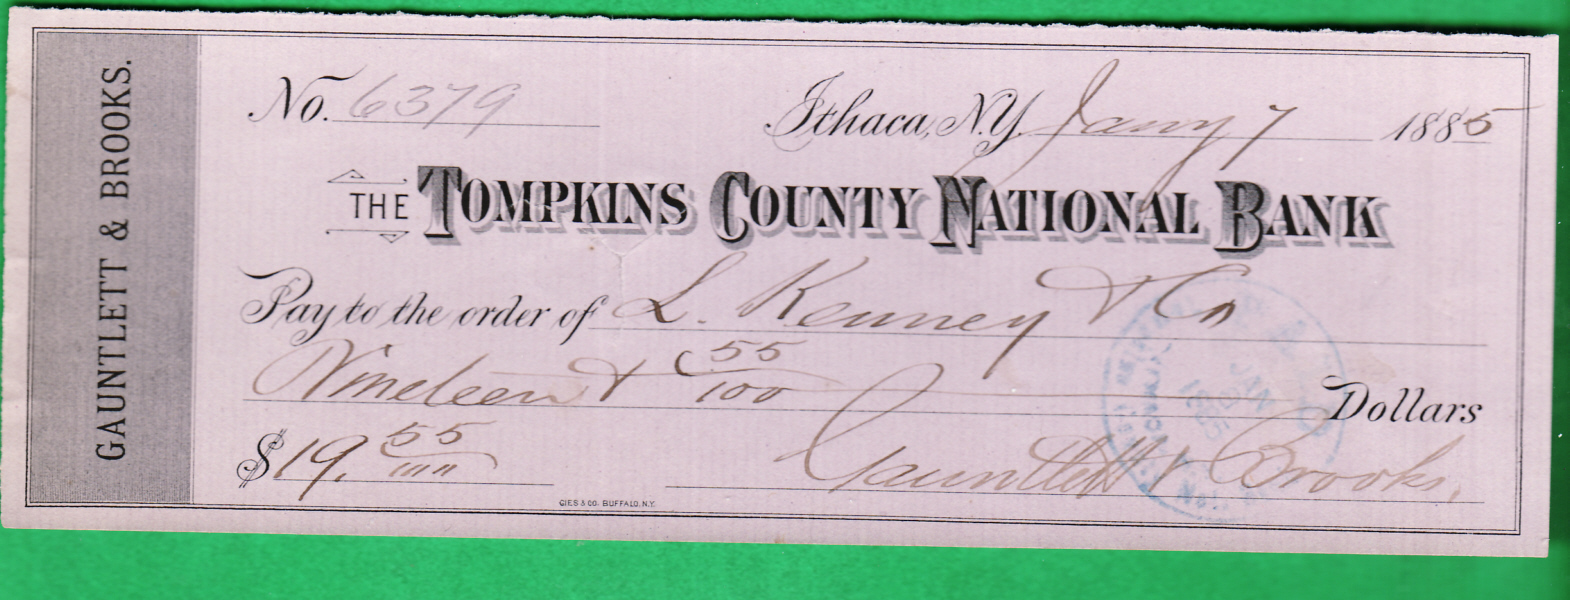 GAUNTLETT & BROOKS.
No. 6379 Ithaca, N.Y. Jany 7 1885
THE TOMPKINS COUNTY NATIONAL BANK
Pay to the order of L. Kenney & Co
Nineteen & 55/100 Dollars
$19.55
Gauntlett & Brooks.
GIES & CO. BUFFALO, N.Y.
JAN
1885